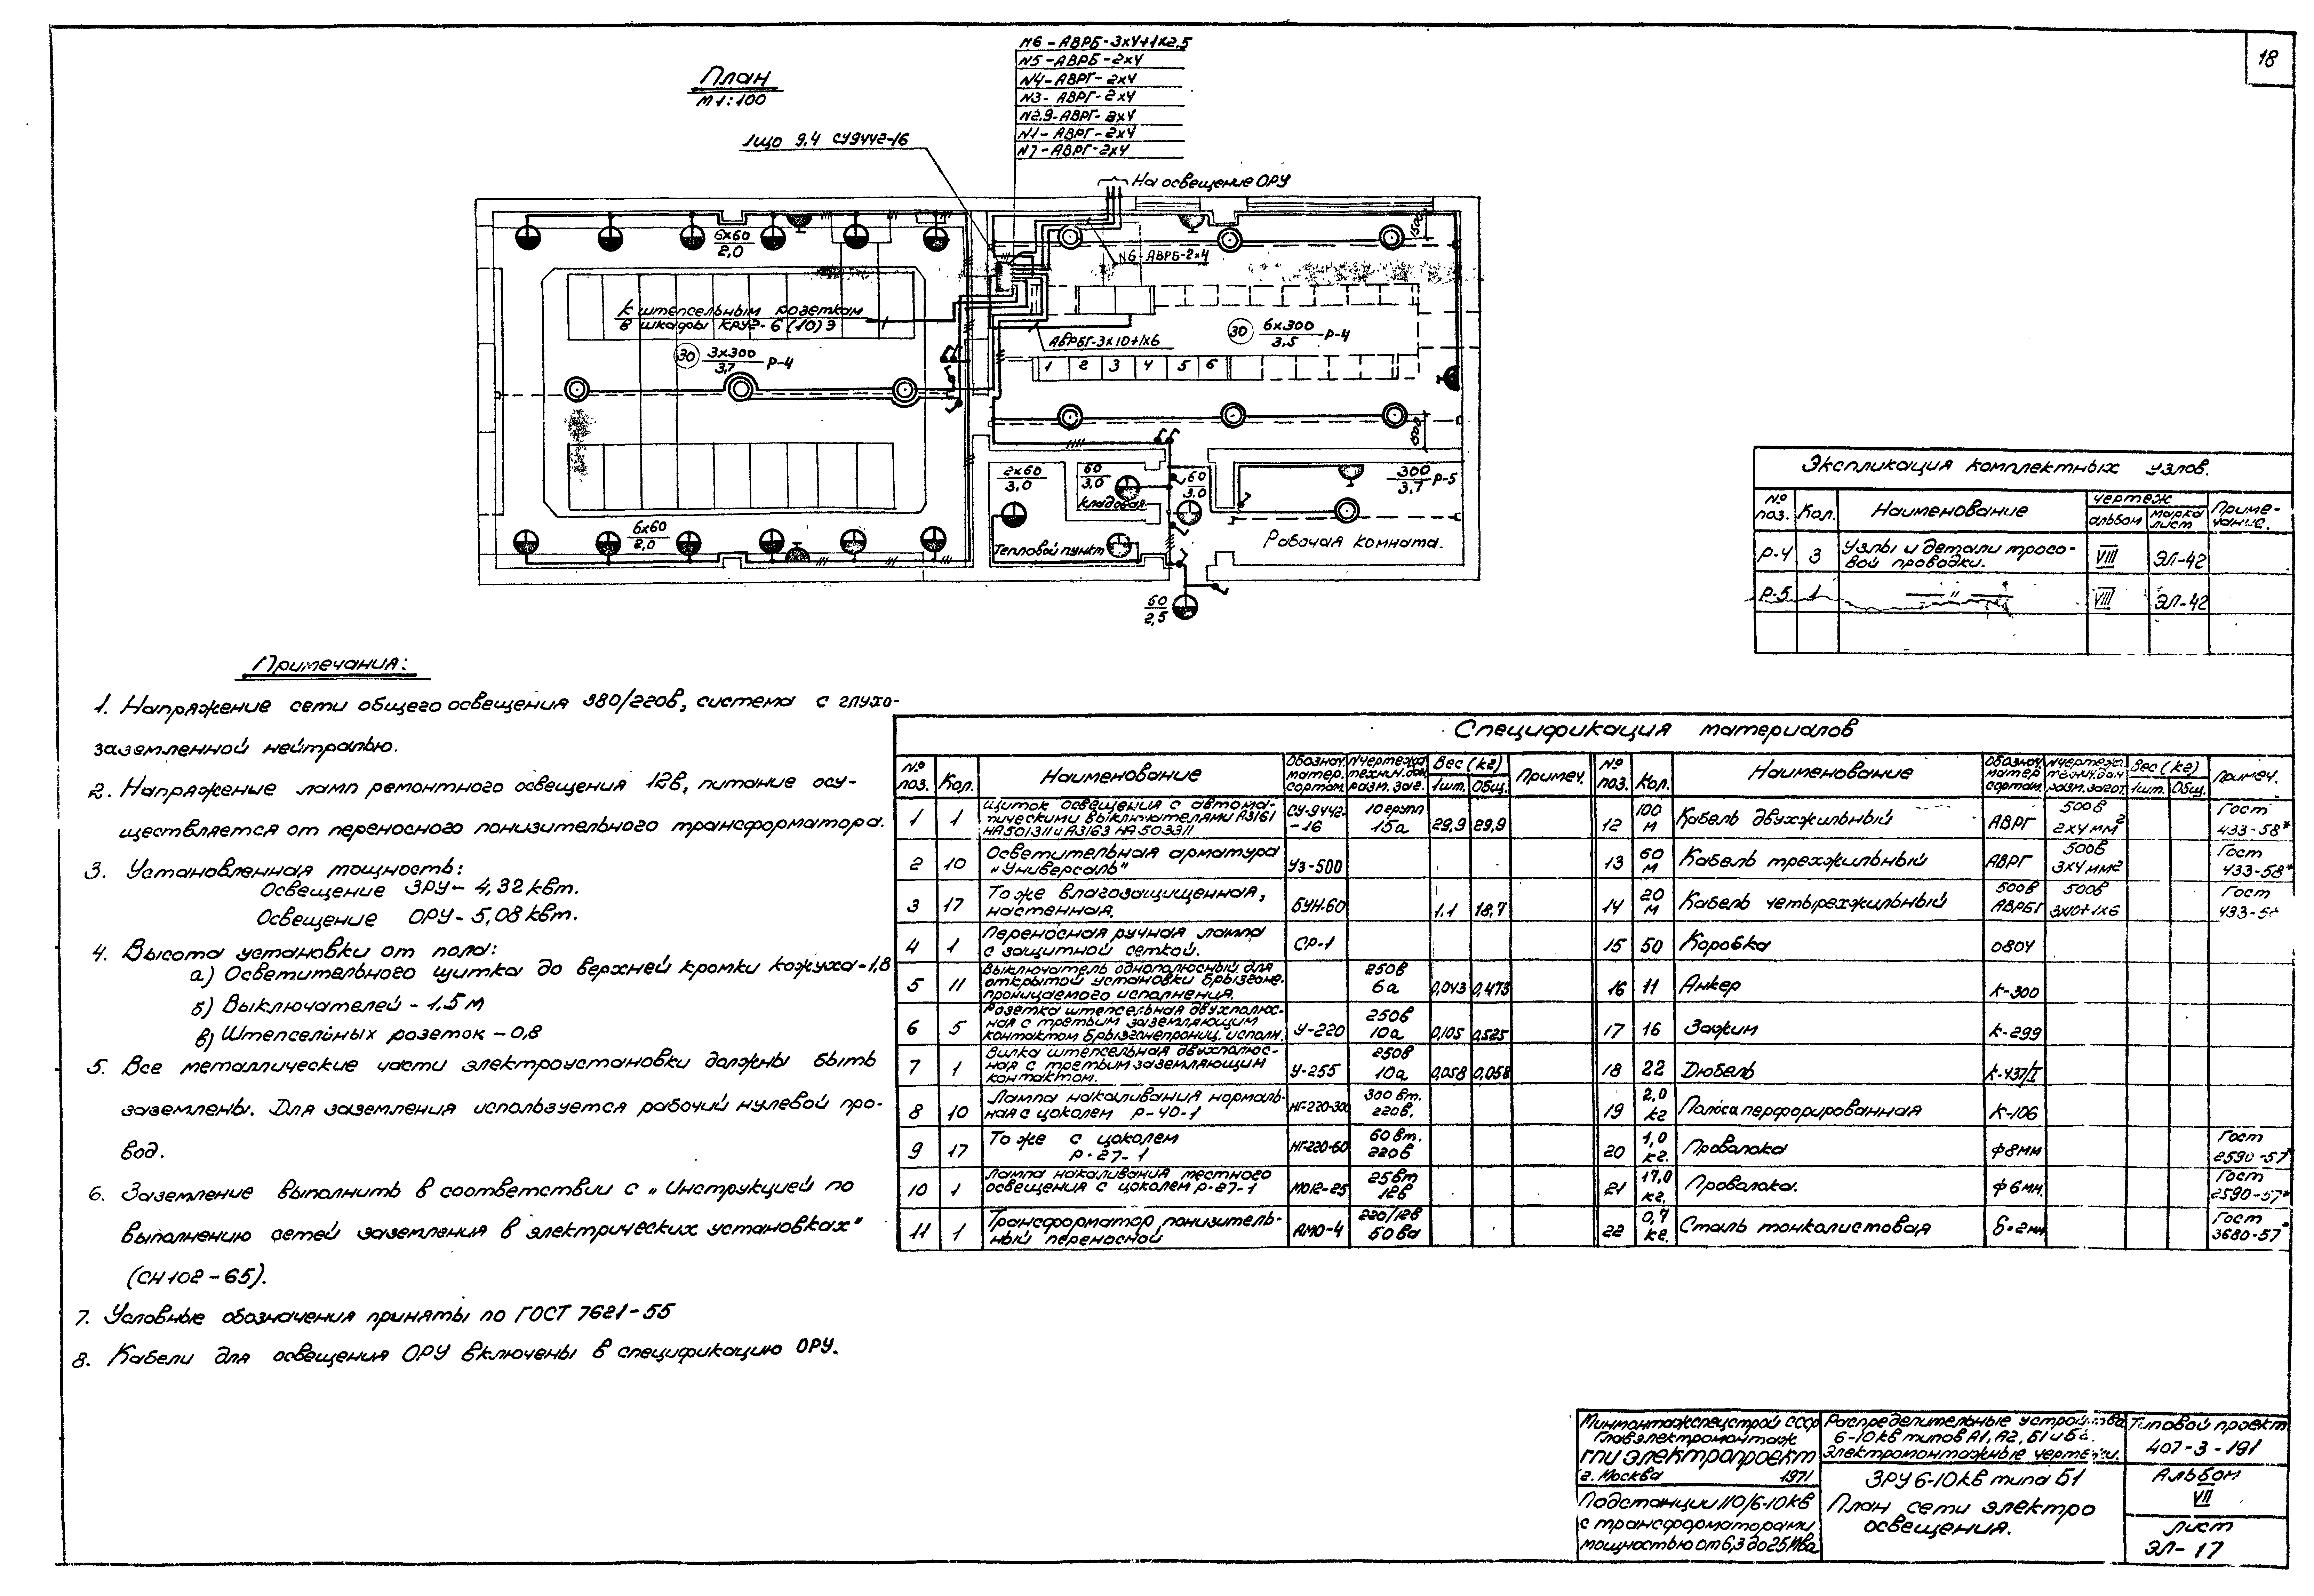 18
План
М 1:100
N6-АВРБ-3х4+1х2.5
N5-АВРБ-2х4
N4-АВРГ-2х4
N3-АВРГ-2х4
N2,9-АВРГ-3х4
N1-АВРГ-2х4
N7-АВРГ-2х4
1що 9,4 СУ9442-16
На освещение ОРУ
6х60
2,0
N6-АВРБ-2х4
500
К штепсельным розеткам
в шкафы КРУ2-6 (10) Э
АВРБГ-3х10+1х6
30 6х300 Р-4
3,5
30 3х300 Р-4
3,7
1 2 3 4 5 6
500
2х60
3,0
60
3,0
кладовая
60
3,0
300 Р-5
3,7
6х60
2,0
Тепловой пункт
Рабочая комната.
60
2,5
Экспликация комплектных узлов.
№ поз. Кол. Наименование чертеж альбом марка лист Примечание.
Р-4 3 Узлы и детали тросовой проводки. VIII ЭЛ-42
Р-5 1 — " — VIII ЭЛ-42
Примечания:
1. Напряжение сети общего освещения 380/220в, система с глухо-
заземленной нейтралью.
2. Напряжение ламп ремонтного освещения 12в, питание осу-
ществляется от переносного понизительного трансформатора.
3. Установленная мощность:
Освещение ЗРУ- 4,32 квт.
Освещение ОРУ- 5,08 квт.
4. Высота установки от пола:
а) Осветительного щитка до верхней кромки кожуха-1,8
б) Выключателей - 1,5 м
в) Штепсельных розеток - 0,8
5. Все металлические части электроустановки должны быть
заземлены. Для заземления используется рабочий нулевой про-
вод.
6. Заземление выполнить в соответствии с „Инструкцией по
выполнению сетей заземления в электрических установках"
(СН 102-65).
7. Условные обозначения приняты по ГОСТ 7621-55
8. Кабели для освещения ОРУ включены в спецификацию ОРУ.
Спецификация материалов
№ поз. Кол. Наименование Обознач. матер. сортам. №чертежа технич. дан. разм. заг. Вес (кг) 1шт. Общ. Примеч.
1 1 Щиток освещения с автоматическими выключателями А3161 НА501311 и А3163 НА 503311 СУ-9442-16 10групп 15а 29,9 29,9
2 10 Осветительная арматура „Универсаль" Уз-500
3 17 То же влагозащищенная, настенная. БУН-60 1.1 18,7
4 1 Переносная ручная лампа с защитной сеткой. СР-1
5 11 Выключатель однополюсный для открытой установки брызгонепроницаемого исполнения. 250в 6а 0,043 0,473
6 5 Розетка штепсельная двухполюсная с третьим заземляющим контактом брызгонепрониц. исполн. У-220 250в 10а 0,105 0,525
7 1 Вилка штепсельная двухполюсная с третьим заземляющим контактом. У-255 250в 10а 0,058 0,058
8 10 Лампа накаливания нормальная с цоколем Р-40-1 НГ-220-300 300 вт. 220в.
9 17 То же с цоколем Р-27-1 НГ-220-60 60 вт. 220в
10 1 Лампа накаливания местного освещения с цоколем Р-27-1 МО12-25 25вт 12в
11 1 Трансформатор понизительный переносной АМО-4 220/12в 50ва
№ поз. Кол. Наименование Обознач. матер. сортам. №чертежа технич. дан. разм. загот. Вес (кг) 1шт. Общ. Примеч.
12 100 м Кабель двухжильный АВРГ 500в 2х4 мм² Гост 433-58*
13 60 м Кабель трехжильный АВРГ 500в 3х4 мм2 Гост 433-58*
14 20 м Кабель четырехжильный 500в АВРБГ 500в 3х10+1х6 Гост
15 50 Коробка 080У
16 11 Анкер К-300
17 16 Зажим К-299
18 22 Дюбель К-437/I
19 2,0 кг Полоса перфорированная К-106
20 1,0 кг. Проволока ф8мм Гост 2590-57*
21 17,0 кг. Проволока. ф6мм. Гост 2590-57*
22 0,7 кг. Сталь тонколистовая б=2мм Гост 3680-57*
Минмонтажспецстрой СССР
Главэлектромонтаж
ГПИ Электропроект
г. Москва 1971
Подстанции 110/6-10кв
с трансформаторами
мощностью от 6,3 до 25 Мва
Распределительные устройства
6-10кв типов А1, А2, Б1 и Б2.
Электромонтажные чертежи.
ЗРУ 6-10кв типа Б1
План сети электро
освещения.
Типовой проект
407-3-191
Альбом
VII
лист
ЭЛ-17